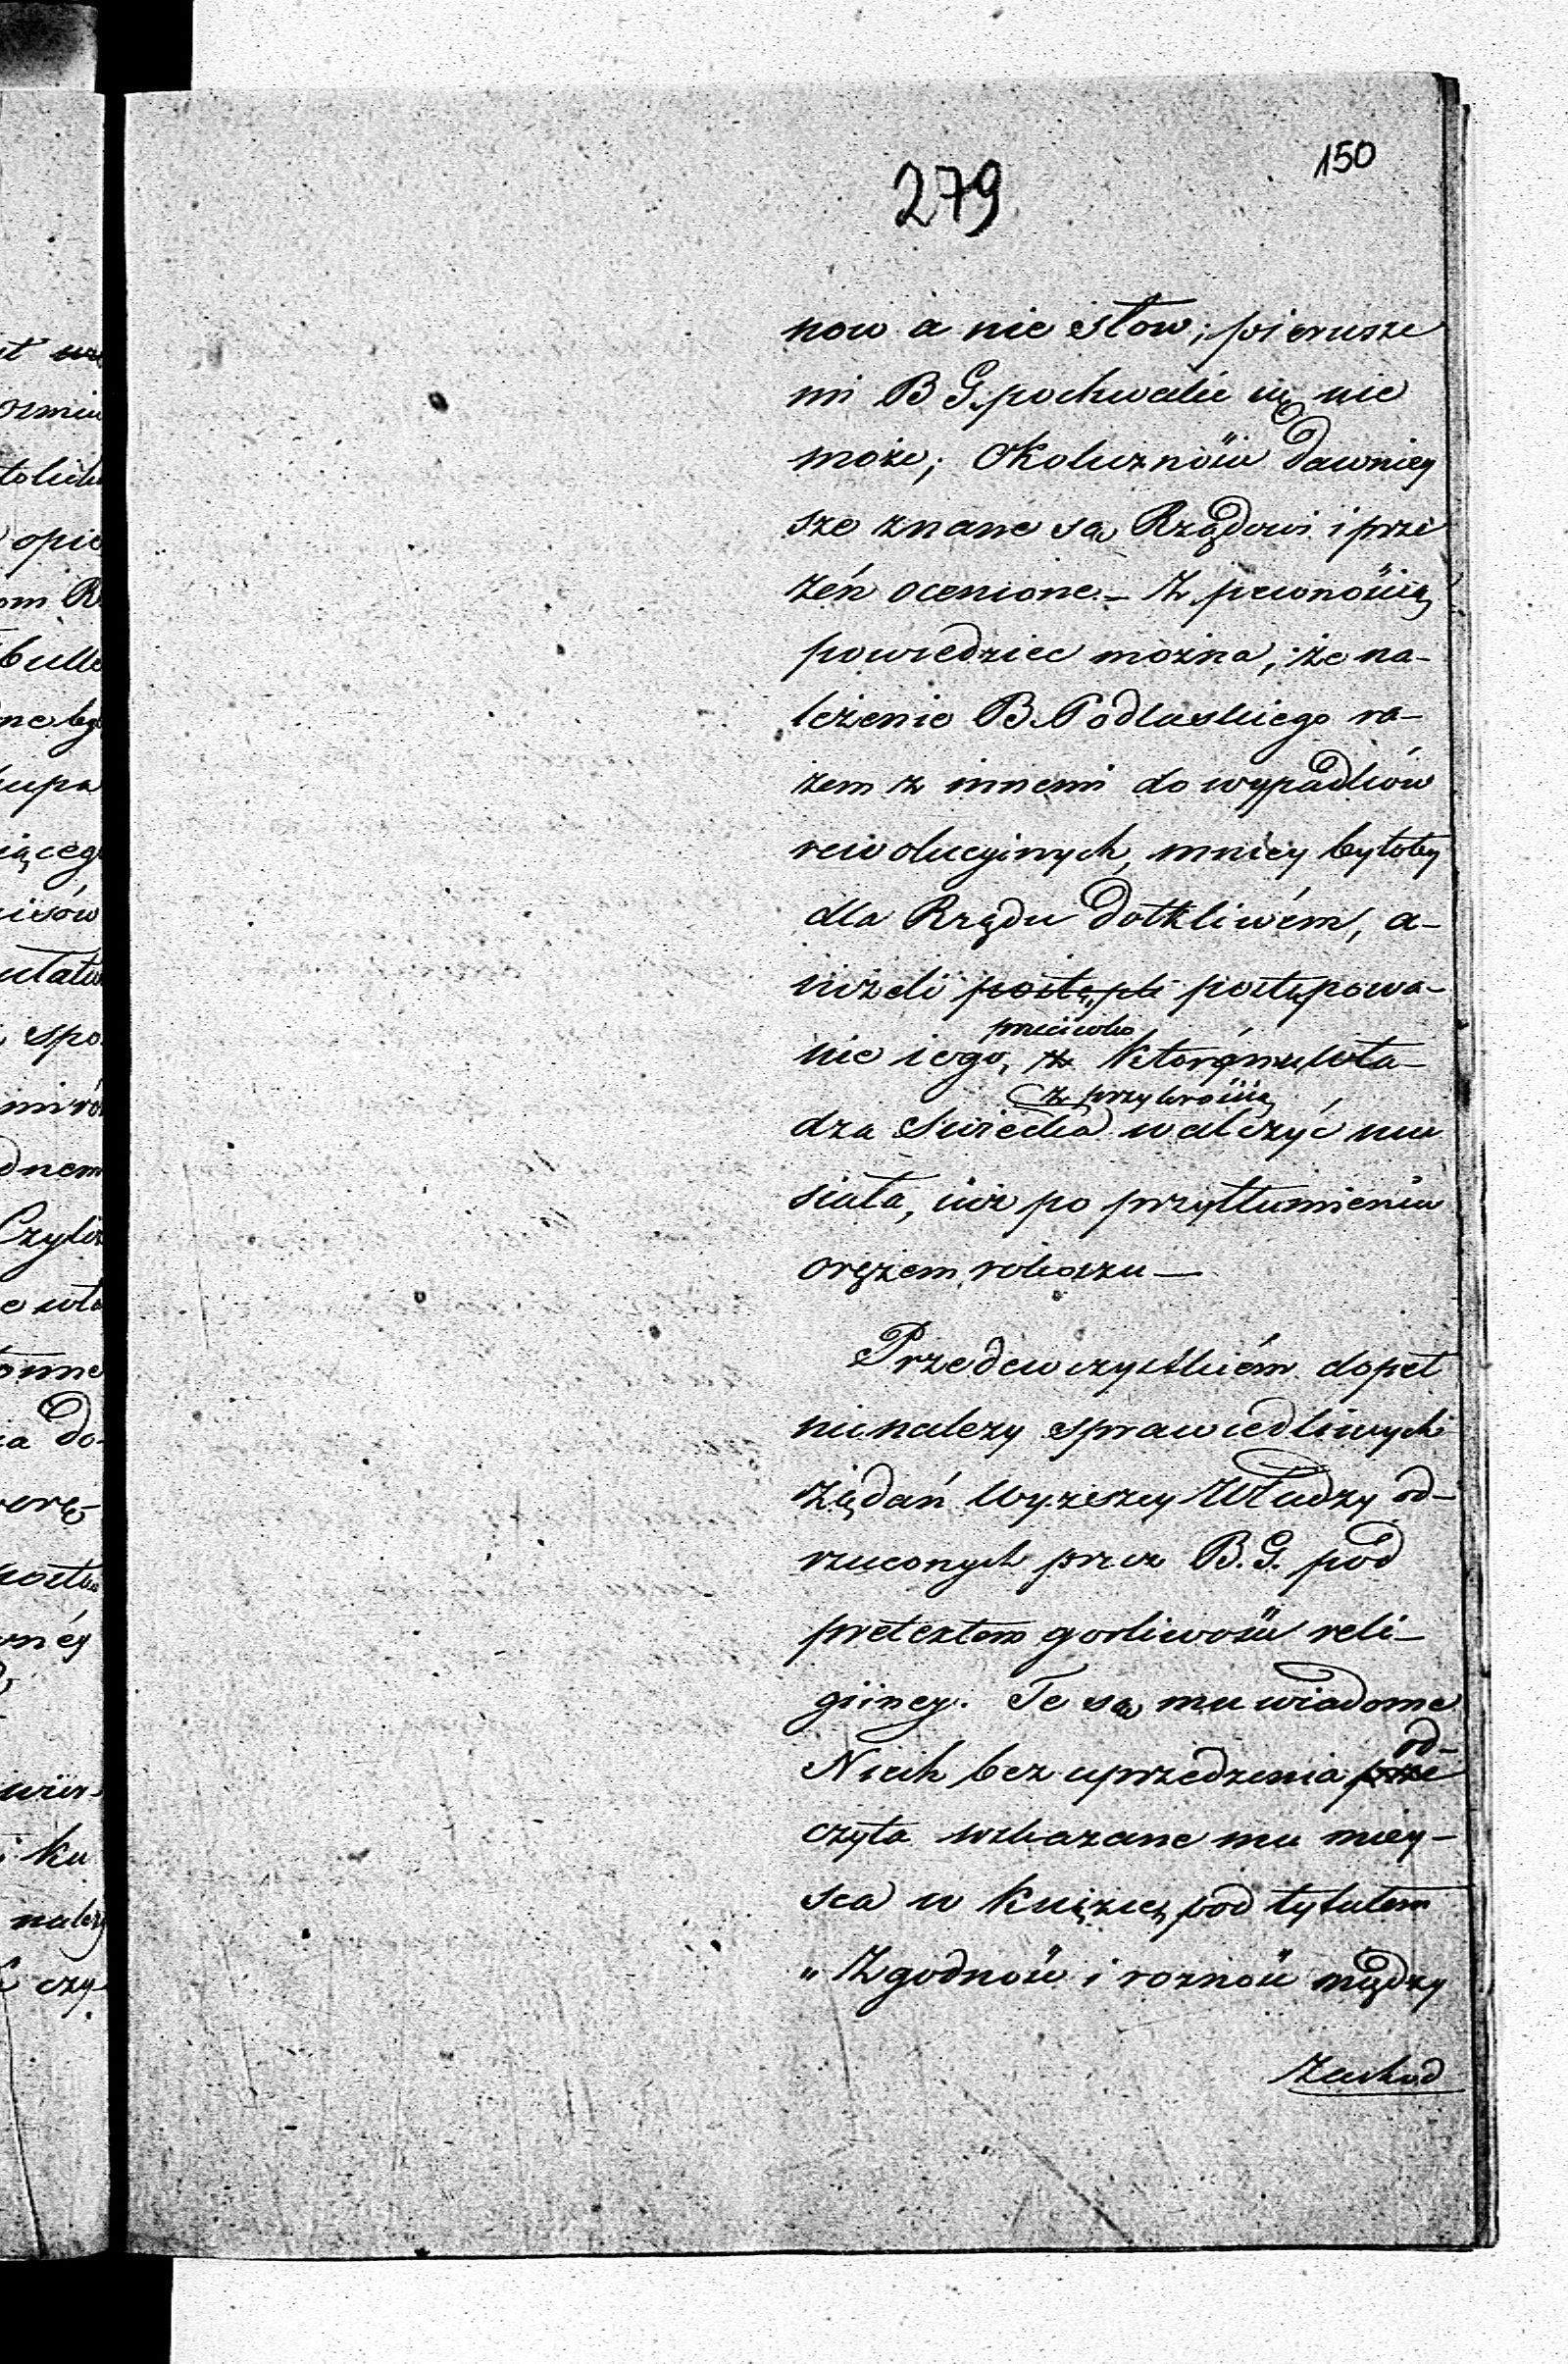 150
279
now a nie słow; pierwsze
mi B G. pochwalić się nie
może; Okoliczności dawniey
sze znane są Rządowi i prze
zeń ocenione. – Z pewnością
powiedziec można, że na-
leżenie B. Podlaskiego ra-
zem z innemi do wypadków
rewolucyinych, mniey byłoby
dla Rządu dotkliwém, a-
niżeli postępk postępowa-
nie iego, z przeciwko którému Wła-
dza Swiecka z przykrością walczyć mu
siała, iuż po przytłumieniu
orężem rokoszu —
Przedewszystkiém dopeł
nić należy sprawiedliwych
żądań Wyższey Władzy od-
rzuconych przez B. G. pod
pretextem gorliwości reli-
giiney. Te są mu wiadome
Niech bez uprzedzenia prze od-
czyta wskazane mu miey-
sca w książce, pod tytułem
„Zgodność i rożność między
Zachod